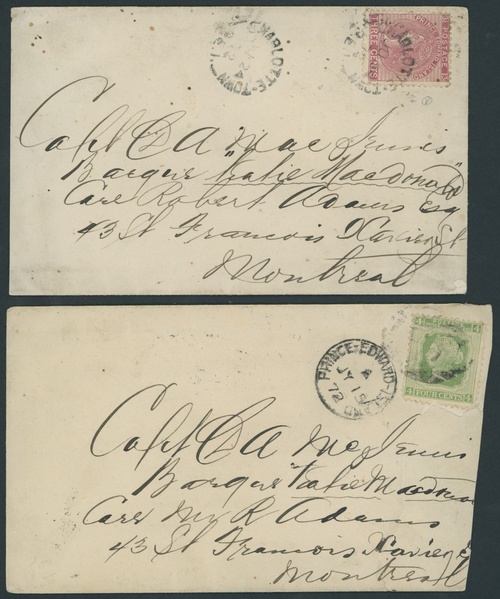 CHARLOTTE-TOWN
P.E.I.
POSTAGE
THREE CENTS
CHARLOTTE-TOWN
Capt D A Mac Innis
Barque "Katie Macdonald"
Care Robert Adams Esq
43 St Francois Xavier St
Montreal
PRINCE-EDWARD-ISLAND
JY 15
72
4 4
4 FOUR CENTS 4
Capt D A Mc Innis
Barque "Katie Macdonald
Care Mr R Adams
43 St Francois Xavier S
Montreal